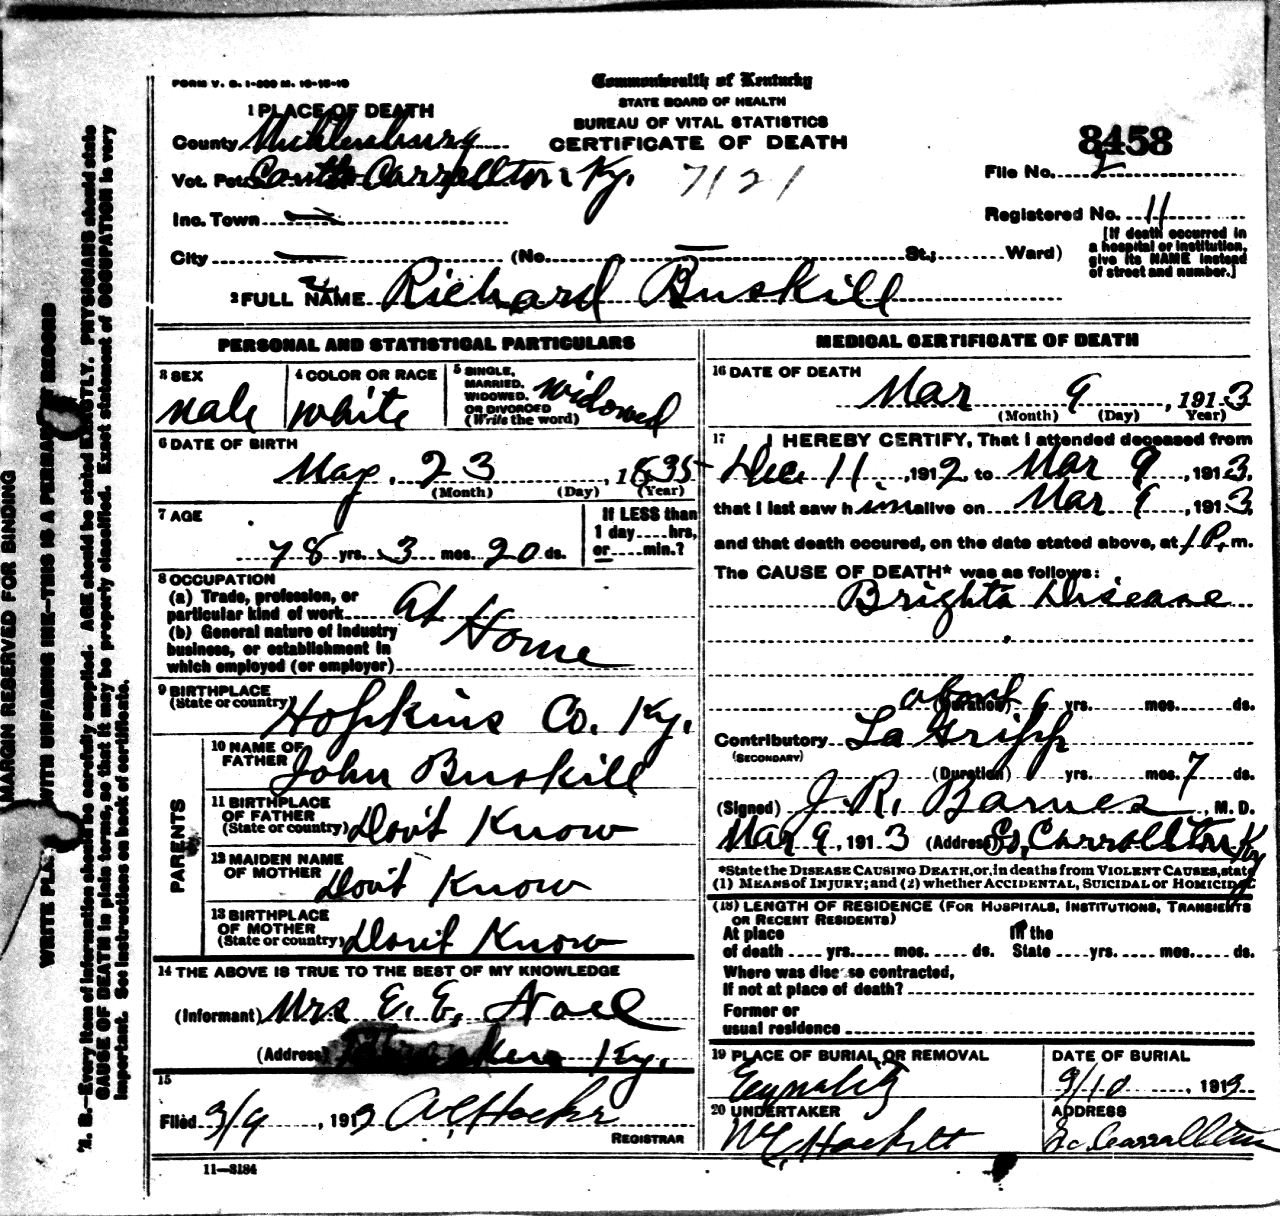 FORM V. S. 1-500 M. 10-15-10
Commonwealth of Kentucky
STATE BOARD OF HEALTH
BUREAU OF VITAL STATISTICS
CERTIFICATE OF DEATH
1 PLACE OF DEATH
County Muhlenburg
Vot. Pct. South Carrollton Ky. 7121
Inc. Town
City (No. St.; Ward)
8458
File No.
Registered No. 11
[If death occurred in
a hospital or institution,
give its NAME instead
of street and number.]
2 FULL NAME Richard Buskill
PERSONAL AND STATISTICAL PARTICULARS
3 SEX
male
4 COLOR OR RACE
White
5 SINGLE,
MARRIED,
WIDOWED,
OR DIVORCED
(Write the word)
Widowed
6 DATE OF BIRTH
May 23, 1835
(Month) (Day) (Year)
7 AGE
78 yrs. 3 mos. 20 ds.
If LESS than
1 day....hrs,
or....min.?
8 OCCUPATION
(a) Trade, profession, or
particular kind of work At
(b) General nature of industry
business, or establishment in
which employed (or employer)
Home
9 BIRTHPLACE
(State or country) Hopkins Co. Ky.
PARENTS
10 NAME OF
FATHER John Buskill
11 BIRTHPLACE
OF FATHER
(State or country) Don't Know
12 MAIDEN NAME
OF MOTHER Don't Know
13 BIRTHPLACE
OF MOTHER
(State or country) Don't Know
14 THE ABOVE IS TRUE TO THE BEST OF MY KNOWLEDGE
(Informant) Mrs E. E.
(Address) Ky.
15
Filed 3/9, 1913
REGISTRAR
11—3184
MEDICAL CERTIFICATE OF DEATH
16 DATE OF DEATH
Mar 9, 1913
(Month) (Day) Year)
17 I HEREBY CERTIFY, That I attended deceased from
Dec 11, 1912, to Mar 9, 1913,
that I last saw him alive on Mar 9, 1913,
and that death occured, on the date stated above, at 1 P. m.
The CAUSE OF DEATH* was as follows:
Brights Disease
about (Duration) 6 yrs. mos. ds.
Contributory La Gripp
(SECONDARY)
(Duration) yrs. mos. 7 ds.
(Signed) J. R. Barnes, M. D.
Mar 9, 1913 (Address) So, Carrollton Ky
*State the DISEASE CAUSING DEATH, or, in deaths from VIOLENT CAUSES, state
(1) MEANS of INJURY; and (2) whether ACCIDENTAL, SUICIDAL or HOMICIDAL
(18) LENGTH OF RESIDENCE (FOR HOSPITALS, INSTITUTIONS, TRANSIENTS
OR RECENT RESIDENTS)
At place In the
of death .... yrs..... mos..... ds. State ....yrs.....mos..... ds.
Where was disease contracted,
If not at place of death?
Former or
usual residence
19 PLACE OF BURIAL OR REMOVAL
DATE OF BURIAL
3/10, 1913
20 UNDERTAKER
ADDRESS
So. Carrollton
MARGIN RESERVED FOR BINDING
WRITE PLAINLY WITH UNFADING INK—THIS IS A PERMANENT RECORD
N. B.—Every item of information should be carefully supplied. AGE should be stated EXACTLY. PHYSICIANS should state
CAUSE OF DEATH in plain terms, so that it may be properly classified. Exact statement of OCCUPATION is very
important. See instructions on back of certificate.